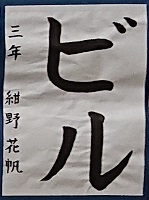 ビル
三年 紺野花帆